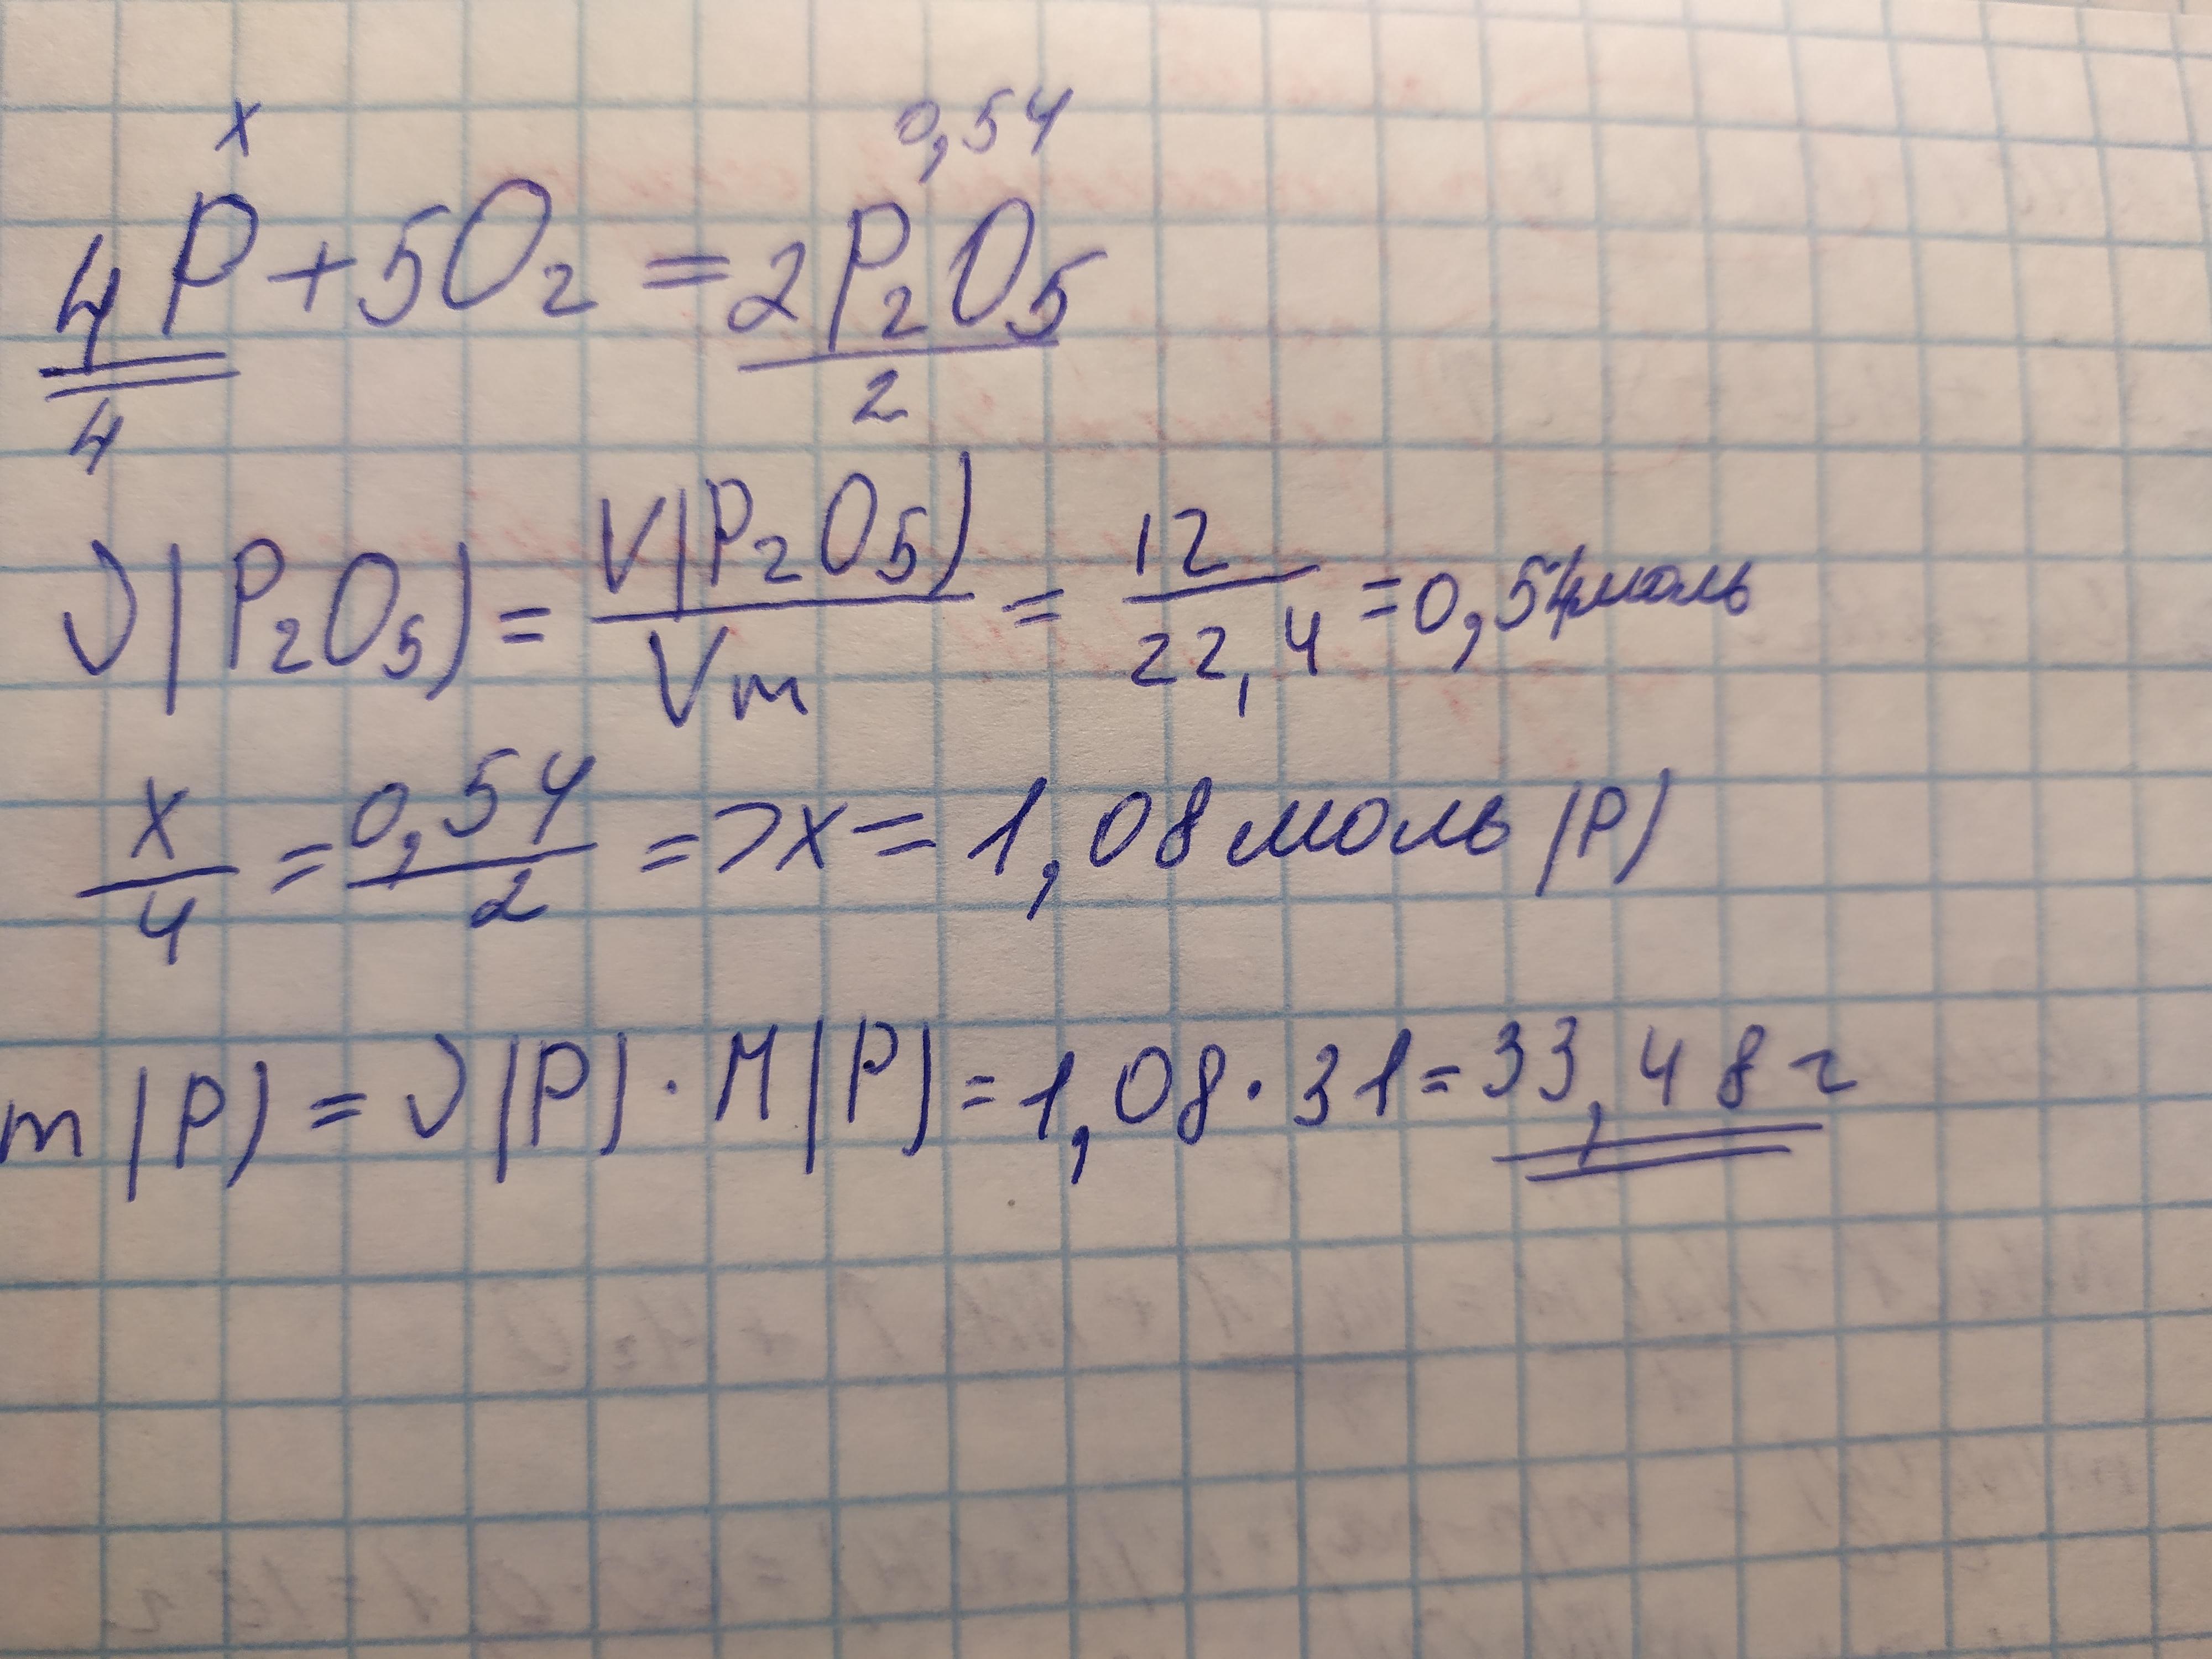 x 0,54
4P + 5O₂ = 2P₂O₅
4 2
ν(P₂O₅) = V(P₂O₅)/Vm = 12/22,4 = 0,54моль
x/4 = 0,54/2 => x = 1,08 моль (P)
m(P) = ν(P) · M(P) = 1,08 · 31 = 33,48 г